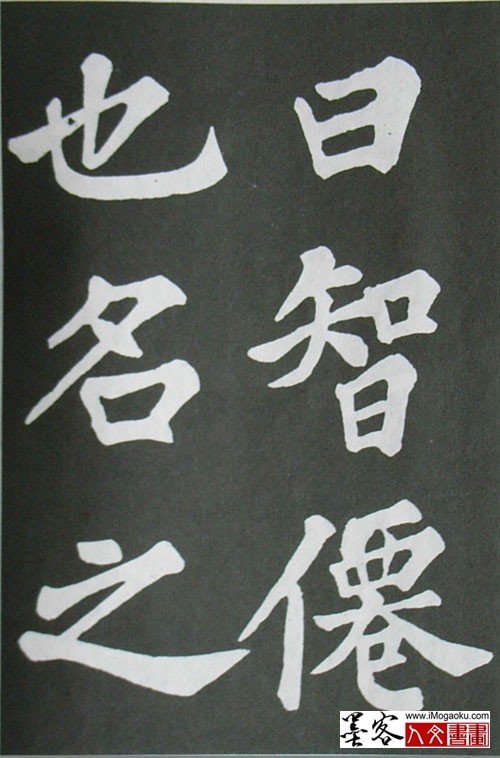 曰智僊
也名之
墨客
www.iMogaoku.com
人文書畫